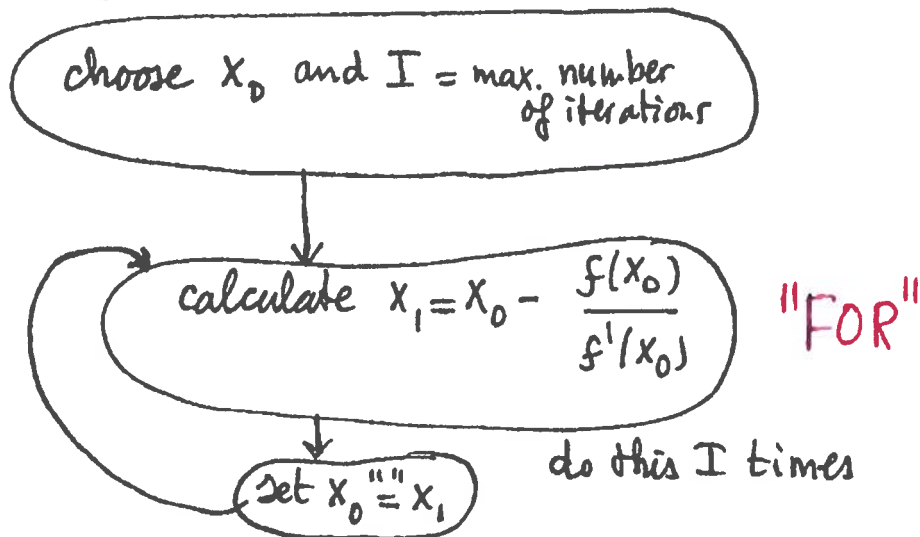 choose x₀ and I = max. number
of iterations
calculate x₁ = x₀ - f(x₀)/f'(x₀)
"FOR"
do this I times
set x₀ "=" x₁